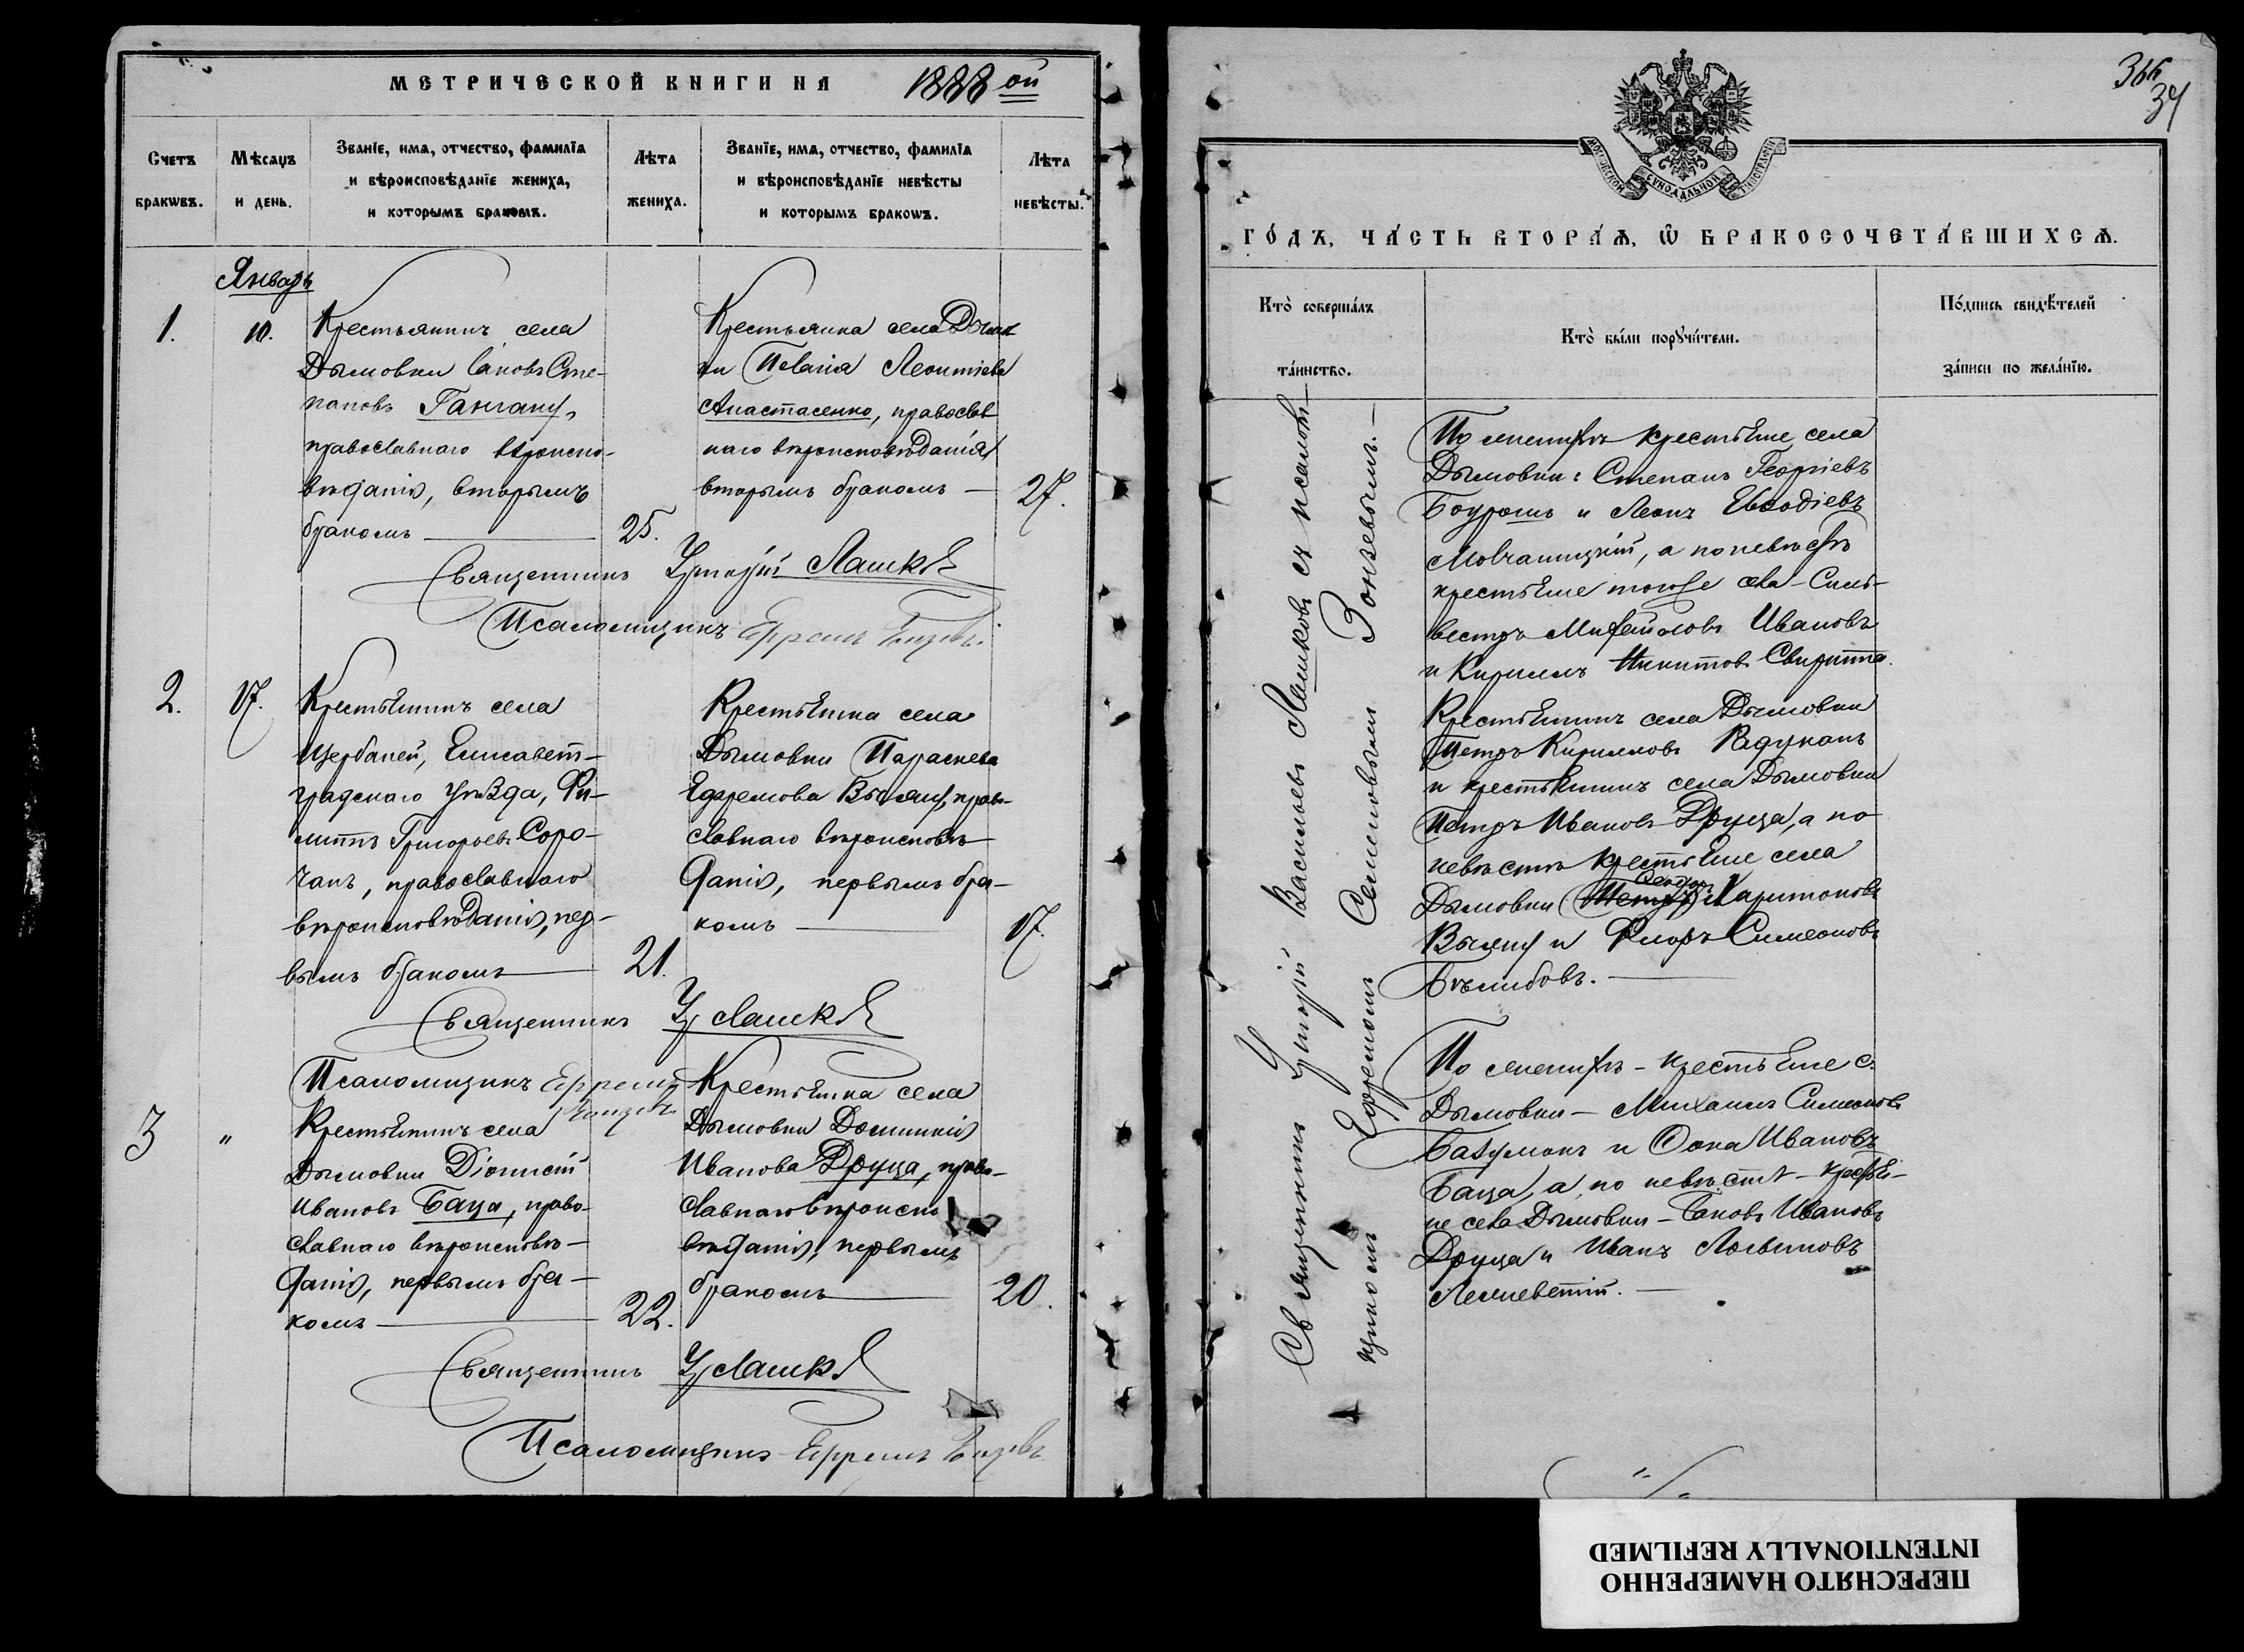 МЕТРИЧЕСКОЙ КНИГИ НА 1888 ой
Счетъ браковъ.
Мѣсяцъ и день.
Званіе, имя, отчество, фамилія
и вѣроисповѣданіе жениха,
и которымъ бракомъ.
Лѣта жениха.
Званіе, имя, отчество, фамилія
и вѣроисповѣданіе невѣсты
и которымъ бракомъ.
Лѣта невѣсты.
Январь
1.
10.
Крестьянинъ села
Дымовки Іаковъ Сте-
пановъ
православнаго вѣроиспо-
вѣданія, вторымъ
бракомъ
25.
Крестьянка села Дымов
ки Пелагія Леонтіева
Анастасенко, православ
наго вѣроисповѣданія
вторымъ бракомъ —
27.
Священникъ Лашковъ
Псаломщикъ Ефремъ
2.
17.
Крестьянинъ села
Щербаней, Елисавет-
градскаго уѣзда, Фи-
липпъ Григорьевъ Соро-
чанъ, православнаго
вѣроисповѣданія, пер-
вымъ бракомъ
21.
Крестьянка села
Дымовки Параскева
Ефремова право-
славнаго вѣроисповѣ
данія, первымъ бра-
комъ
17.
Священникъ Лашковъ
Псаломщикъ Ефремъ
3
"
Крестьянинъ села
Дымовки Діонисій
Ивановъ Баца, право-
славнаго вѣроисповѣ-
данія, первымъ бра-
комъ
22.
Крестьянка села
Дымовки Домникія
Иванова Друца, право-
славнаго вѣроиспо
вѣданія, первымъ
бракомъ
20.
Священникъ Лашковъ
Псаломщикъ Ефремъ
366
34
МОСКОВСКОЙ СУНОДАЛЬНОЙ ТИПОГРАФІИ
ГОДЪ, ЧАСТЬ ВТОРАЯ, Ѡ БРАКОСОЧЕТАВШИХСЯ.
Кто совершалъ таинство.
Кто были поручители.
Подпись свидѣтелей
записи по желанію.
Священникъ Василіевъ Лашковъ съ псалом-
щикомъ Ефремомъ Семеновымъ
По женихѣ крестьяне села
Дымовки: Степанъ Георгіевъ
Боурошъ и Леонъ Евводіевъ
Мовчаницкій, а по невѣстѣ
крестьяне того же села — Силь-
вестръ Михайловъ Ивановъ
и Кириллъ Никитовъ
Крестьянинъ села Дымовки
Петръ Кирилловъ Радуканъ
и крестьянинъ села Дымовки
Петръ Ивановъ Друца, а по
невѣстѣ крестьяне села
Дымовки Харитоновъ
и Флоръ Симеоновъ
По женихѣ — крестьяне с.
Дымовки — Михаилъ Симеоновъ
и Ѳома Ивановъ
Баца, а по невѣстѣ — крестья-
не села Дымовки — Іаковъ Ивановъ
Друца и Иванъ Логвиновъ
ПЕРЕСНЯТО НАМЕРЕННО
INTENTIONALLY REFILMED